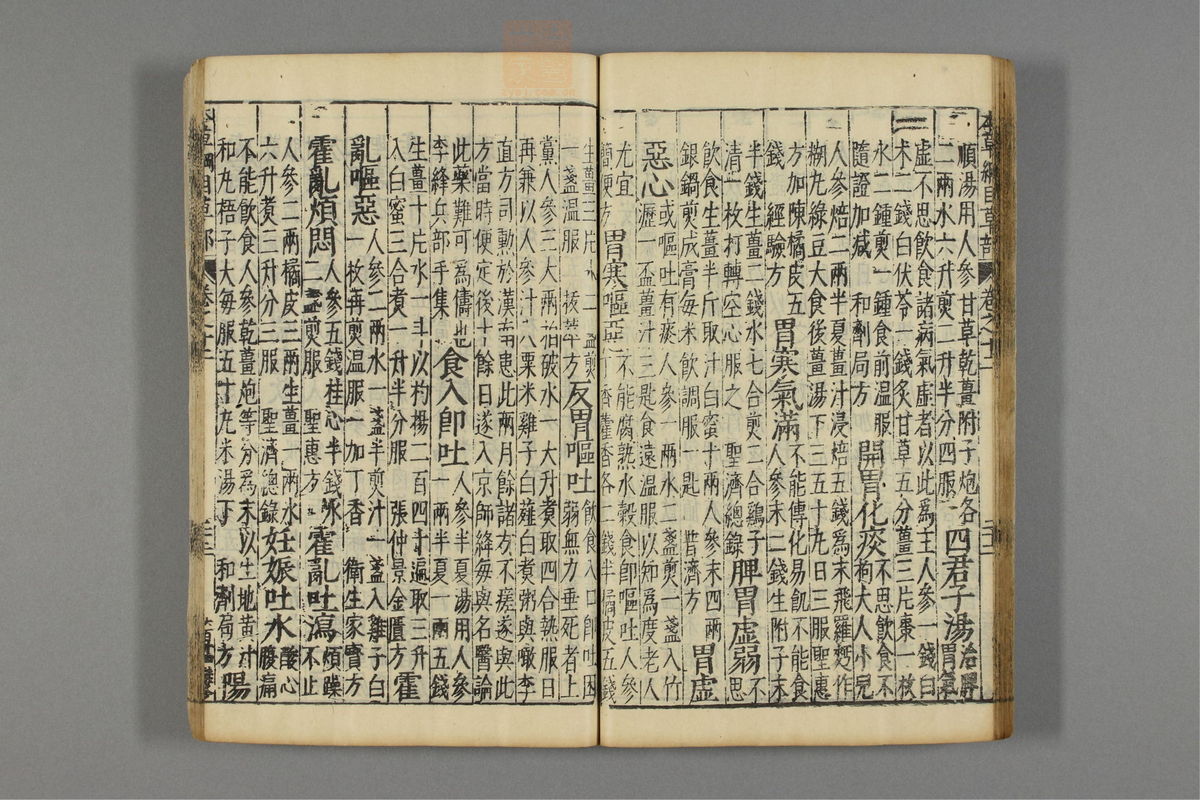 本草綱目草部 卷之十二
順湯用人參甘草乾薑附子炮各
二兩水六升煎二升半分四服 四君子湯治脾胃氣
虛不思飲食諸病氣虛者以此爲主人參一錢白
术二錢白伏苓一錢炙甘草五分薑三片棗一枚
水二鍾煎一鍾食前温服
隨證加減 和劑局方 開胃化痰不思飲食不拘大人小兒
人參焙二兩半夏薑汁浸焙五錢爲末飛羅麪作
糊丸綠豆大食後薑湯下三五十丸日三服聖惠
方加陳橘皮五
錢 經驗方 胃寒氣滿不能傳化易飢不能食人參末二錢生附子末
半錢生薑二錢水七合煎二合鷄子
清一枚打轉空心服之 聖濟總錄 脾胃虛弱不思
飲食生薑半斤取汁白蜜十兩人參末四兩
銀鍋煎成膏每米飲調服一匙 普濟方 胃虛
惡心或嘔吐有痰人參一兩水二盞煎一盞入竹
瀝一盃薑汁三匙食遠温服以知爲度老人
尤宜
簡便方 胃寒嘔惡不能腐熟水穀食即嘔吐人參
丁香藿香各二錢半橘皮五錢
生薑三片水二盞煎
一盞温服 拔萃方 反胃嘔吐飲食入口即吐困弱無力垂死者上
黨人參三大兩拍破水一大升煮取四合熱服日
再兼以人參汁入粟米雞子白薤白煮粥與噉李
直方司勳於漢南患此兩月餘諸方不瘥遂與此
方當時便定後十餘日遂入京師絳每與名醫論
此藥難可爲儔也
李絳兵部手集 食入卽吐人參半夏湯用人參一兩半夏一兩五錢
生薑十片水一斗以杓揚二百四十遍取三升
入白蜜三合煮一升半分服 張仲景金匱方 霍
亂嘔惡人參二兩水一盞半煎汁一盞入雞子白
一枚再煎温服一加丁香 衛生家寶方
霍亂煩悶人參五錢桂心半錢水
二盞煎服 聖惠方 霍亂吐瀉煩躁不止
人參二兩橘皮三兩生薑一兩水
六升煮三升分三服 聖濟總錄 妊娠吐水酸心腹痛
不能飲食人參乾薑炮等分爲末以生地黄汁
和丸梧子大每服五十丸米湯下 和劑局方 陽
本草綱目草部 卷之十二